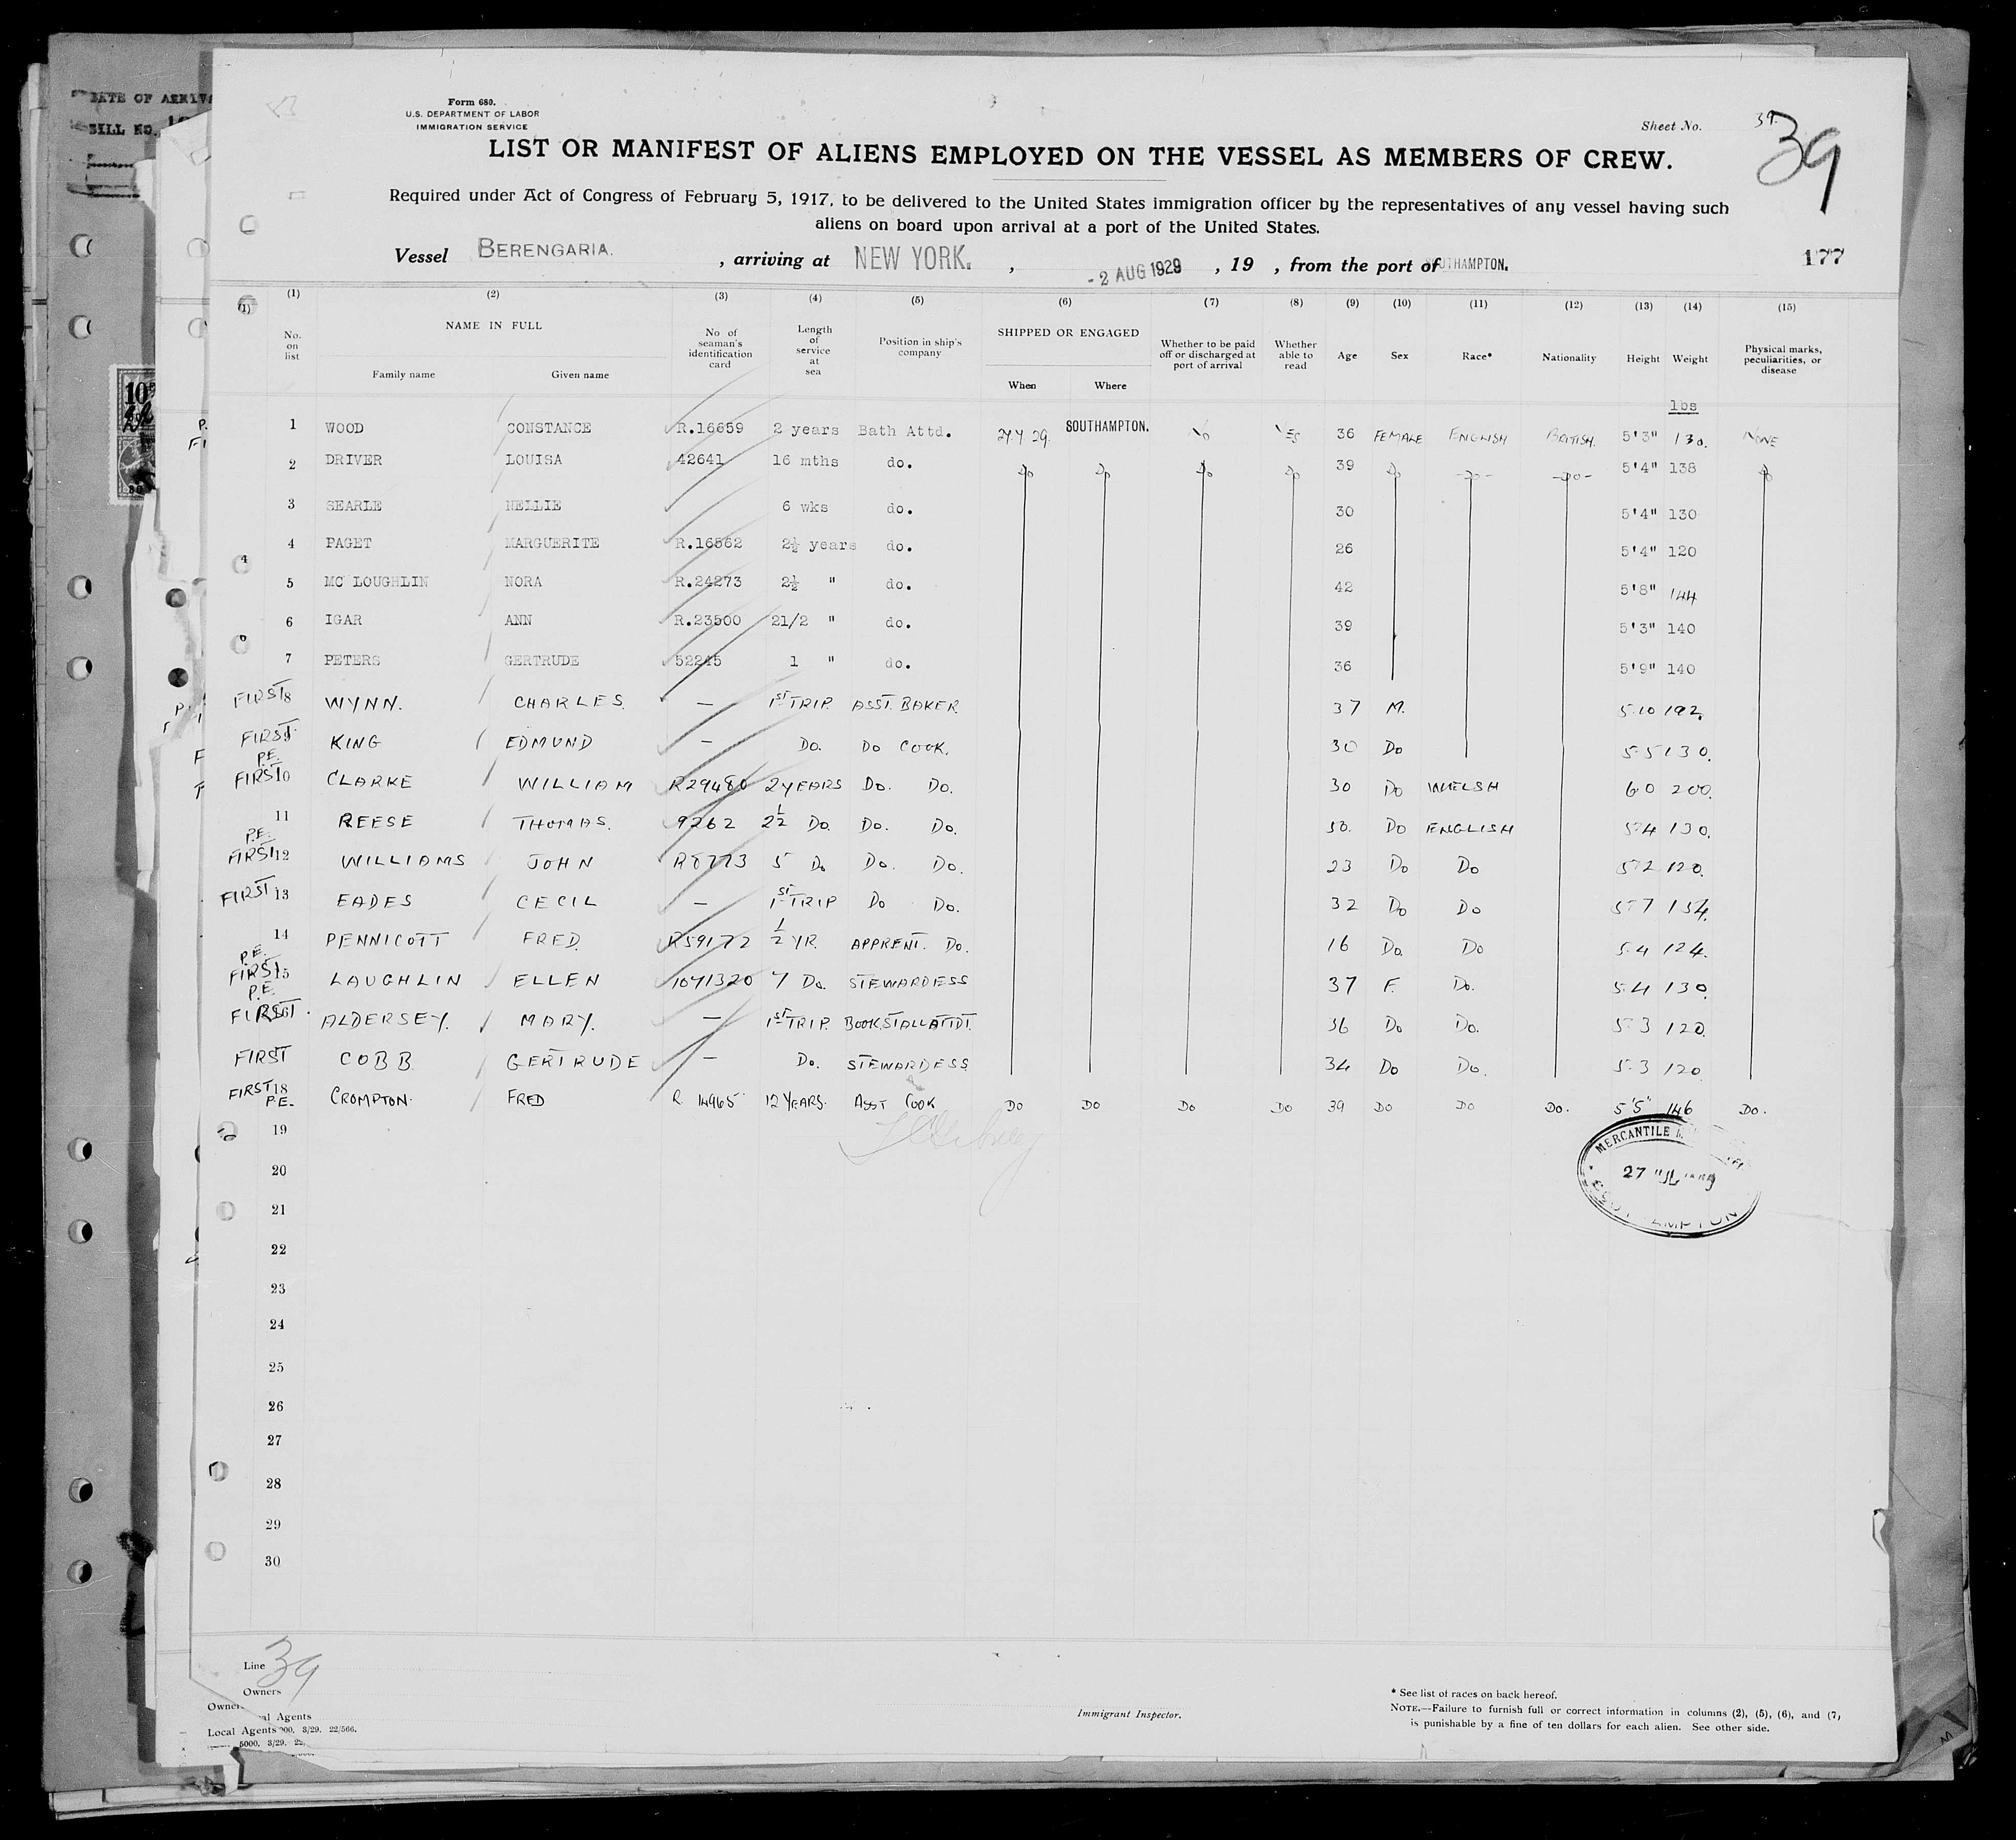 DATE OF ARRIVA
BILL NO.
Form 680.
U.S. DEPARTMENT OF LABOR
IMMIGRATION SERVICE
Sheet No. 39.
39
LIST OR MANIFEST OF ALIENS EMPLOYED ON THE VESSEL AS MEMBERS OF CREW.
Required under Act of Congress of February 5, 1917, to be delivered to the United States immigration officer by the representatives of any vessel having such
aliens on board upon arrival at a port of the United States.
Vessel BERENGARIA. , arriving at NEW YORK. , - 2 AUG 1929 , 19 , from the port of SOUTHAMPTON.
177
(1) (2) (3) (4) (5) (6) (7) (8) (9) (10) (11) (12) (13) (14) (15)
No. on list NAME IN FULL Family name Given name No of seaman's identification card Length of service at sea Position in ship's company SHIPPED OR ENGAGED When Where Whether to be paid off or discharged at port of arrival Whether able to read Age Sex Race* Nationality Height Weight Physical marks, peculiarities, or disease
lbs
1 WOOD CONSTANCE R.16659 2 years Bath Attd. 27.7.29. SOUTHAMPTON. No YES 36 FEMALE ENGLISH BRITISH. 5'3" 130. NONE
2 DRIVER LOUISA 42641 16 mths do. Do Do Do Do 39 Do -Do- -Do- 5'4" 138 Do
3 SEARLE NELLIE 6 wks do. 30 5'4" 130
4 PAGET MARGUERITE R.16562 2½ years do. 26 5'4" 120
5 MC LOUGHLIN NORA R.24273 2½ " do. 42 5'8" 144
6 IGAR ANN R.23500 21/2 " do. 39 5'3" 140
7 PETERS GERTRUDE 52245 1 " do. 36 5'9" 140
FIRST 8 WYNN. CHARLES. — 1ST TRIP. ASST. BAKER. 37 M. 5.10 192.
FIRST 9 KING EDMUND — Do. Do COOK. 30 Do 5.5 130.
P.E.
FIRST 10 CLARKE WILLIAM R29480 2 YEARS Do. Do. 30 Do WELSH 6.0 200.
11 REESE THOMAS. 9262 2½ Do. Do. Do. 30. Do ENGLISH 5.4 130.
P.E.
FIRST 12 WILLIAMS JOHN R8773 5 Do Do. Do. 23 Do Do 5.2 120.
FIRST 13 EADES CECIL — 1ST TRIP Do Do. 32 Do Do 5.7 154.
14 PENNICOTT FRED. R59172 ½ YR. APPRENT. Do. 16 Do. Do 5.4 124.
P.E.
FIRST 15 LAUGHLIN ELLEN 1071320 7 Do. STEWARDESS 37 F. Do. 5.4 130.
P.E.
FIRST 16 ALDERSEY. MARY. — 1ST TRIP. BOOKSTALL ATTDT. 36 Do Do. 5.3 120.
FIRST COBB GERTRUDE — Do. STEWARDESS 34 Do Do. 5.3 120.
FIRST 18 CROMPTON. FRED R. 14965 12 YEARS. ASST COOK Do Do Do Do 39 Do Do Do. 5'5" 146 Do.
P.E.
19
20
21
22
23
24
25
26
27
28
29
30
MERCANTILE
27
Line 39
Owners
Local Agents
5000. 3/29. 22/566.
Immigrant Inspector.
* See list of races on back hereof.
NOTE.—Failure to furnish full or correct information in columns (2), (5), (6), and (7)
is punishable by a fine of ten dollars for each alien. See other side.